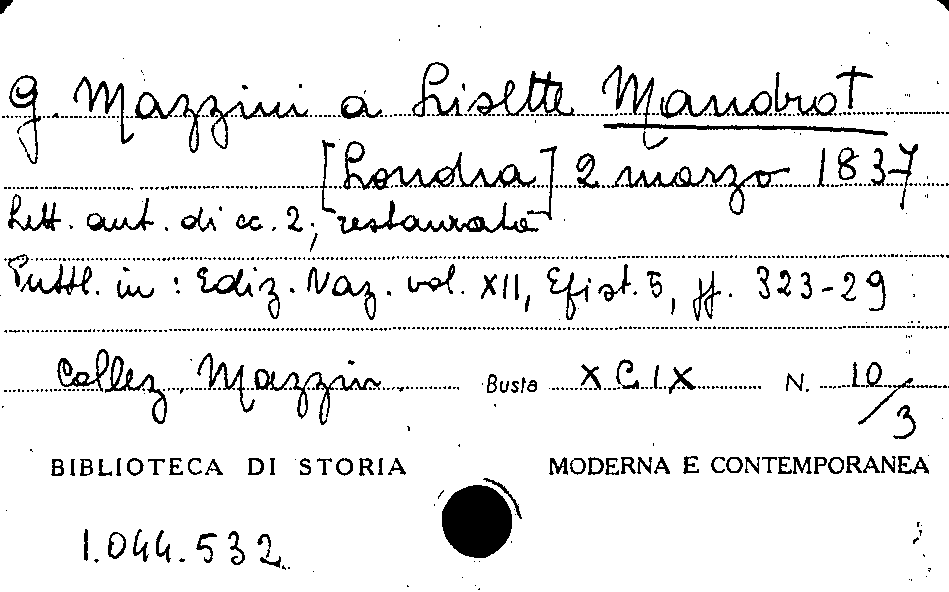 G. Mazzini a Lisette Mandrot
[Londra] 2 marzo 1837
Lett. aut. di cc. 2, restaurata
Pubbl. in: Ediz. Naz. vol. XII, Epist. 5, pp. 323-29
Collez. Mazzin. Busta XCIX N. 10/3
BIBLIOTECA DI STORIA MODERNA E CONTEMPORANEA
1.044.532